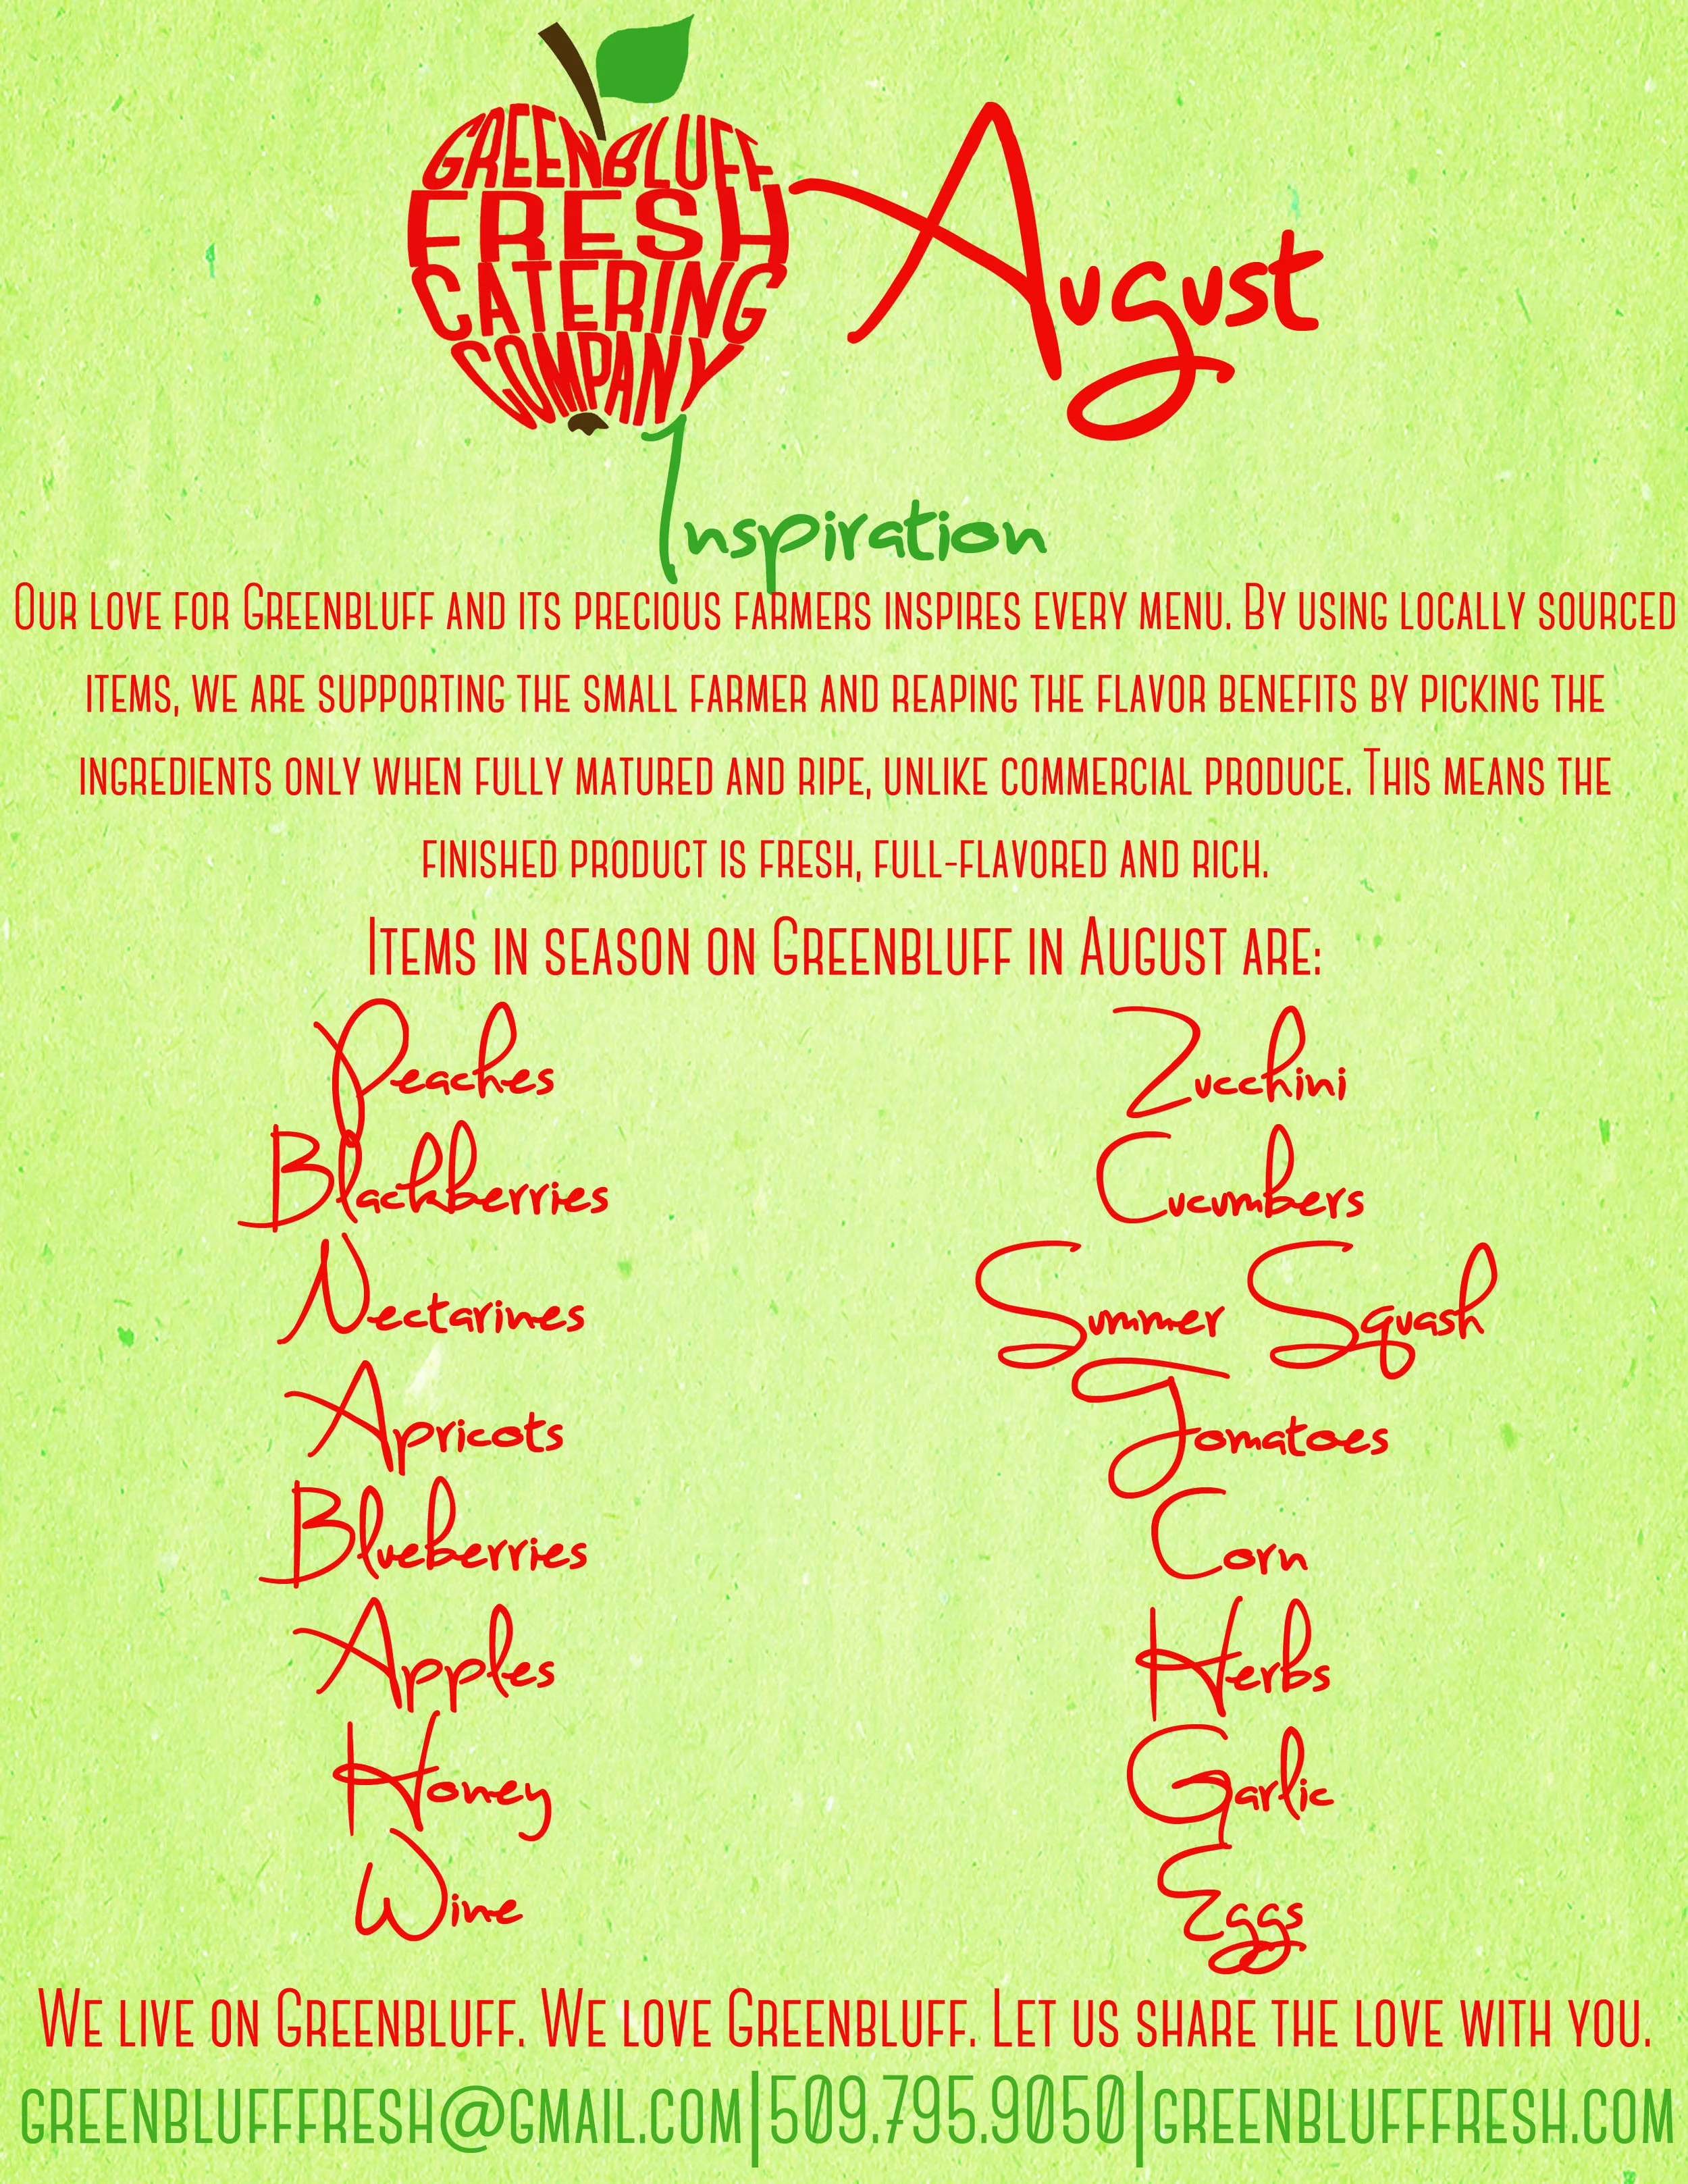 GREENBLUFF
FRESH
CATERING
COMPANY
August
Inspiration
Our love for Greenbluff and its precious farmers inspires every menu. By using locally sourced
items, we are supporting the small farmer and reaping the flavor benefits by picking the
ingredients only when fully matured and ripe, unlike commercial produce. This means the
finished product is fresh, full-flavored and rich.
Items in season on Greenbluff in August are:
Peaches
Blackberries
Nectarines
Apricots
Blueberries
Apples
Honey
Wine
Zucchini
Cucumbers
Summer Squash
Tomatoes
Corn
Herbs
Garlic
Eggs
We live on Greenbluff. We love Greenbluff. Let us share the love with you.
greenblufffresh@gmail.com|509.795.9050|greenblufffresh.com